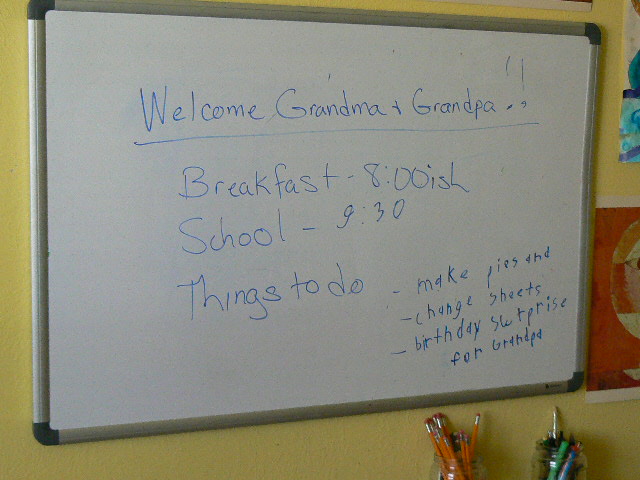 Welcome Grandma + Grandpa !!
Breakfast - 8:00ish
School - 9:30
Things to do
- make pies and
- change sheets
- birthday surprise
for Grandpa